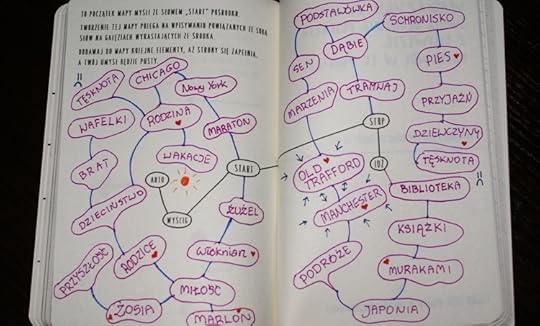 TO POCZĄTEK MAPY MYŚLI ZE SŁOWEM „START” POŚRODKU.
TWORZENIE TEJ MAPY POLEGA NA WPISYWANIU POWIĄZANYCH ZE SOBĄ
SŁÓW NA GAŁĘZIACH WYRASTAJĄCYCH ZE ŚRODKA.
DODAWAJ DO MAPY KOLEJNE ELEMENTY, AŻ STRONY SIĘ ZAPEŁNIĄ,
A TWÓJ UMYSŁ BĘDZIE PUSTY.
TĘSKNOTA
CHICAGO
NOWY YORK
WAFELKI
RODZINA
MARATON
BRAT
WAKACJE
START
AUTO
WYŚCIG
DZIECIŃSTWO
ŻUŻEL
RODZICE
WŁÓKNIARZ
PRZYSZŁOŚĆ
MIŁOŚĆ
ZOSIA
MARLON
PODSTAWÓWKA
SCHRONISKO
DĄBIE
SEN
PIES
MARZENIA
TRAMWAJ
PRZYJAŹŃ
STOP
DZIEWCZYNY
TĘSKNOTA
OLD
TRAFFORD
IDŹ
BIBLIOTEKA
MANCHESTER
KSIĄŻKI
PODRÓŻE
MURAKAMI
JAPONIA